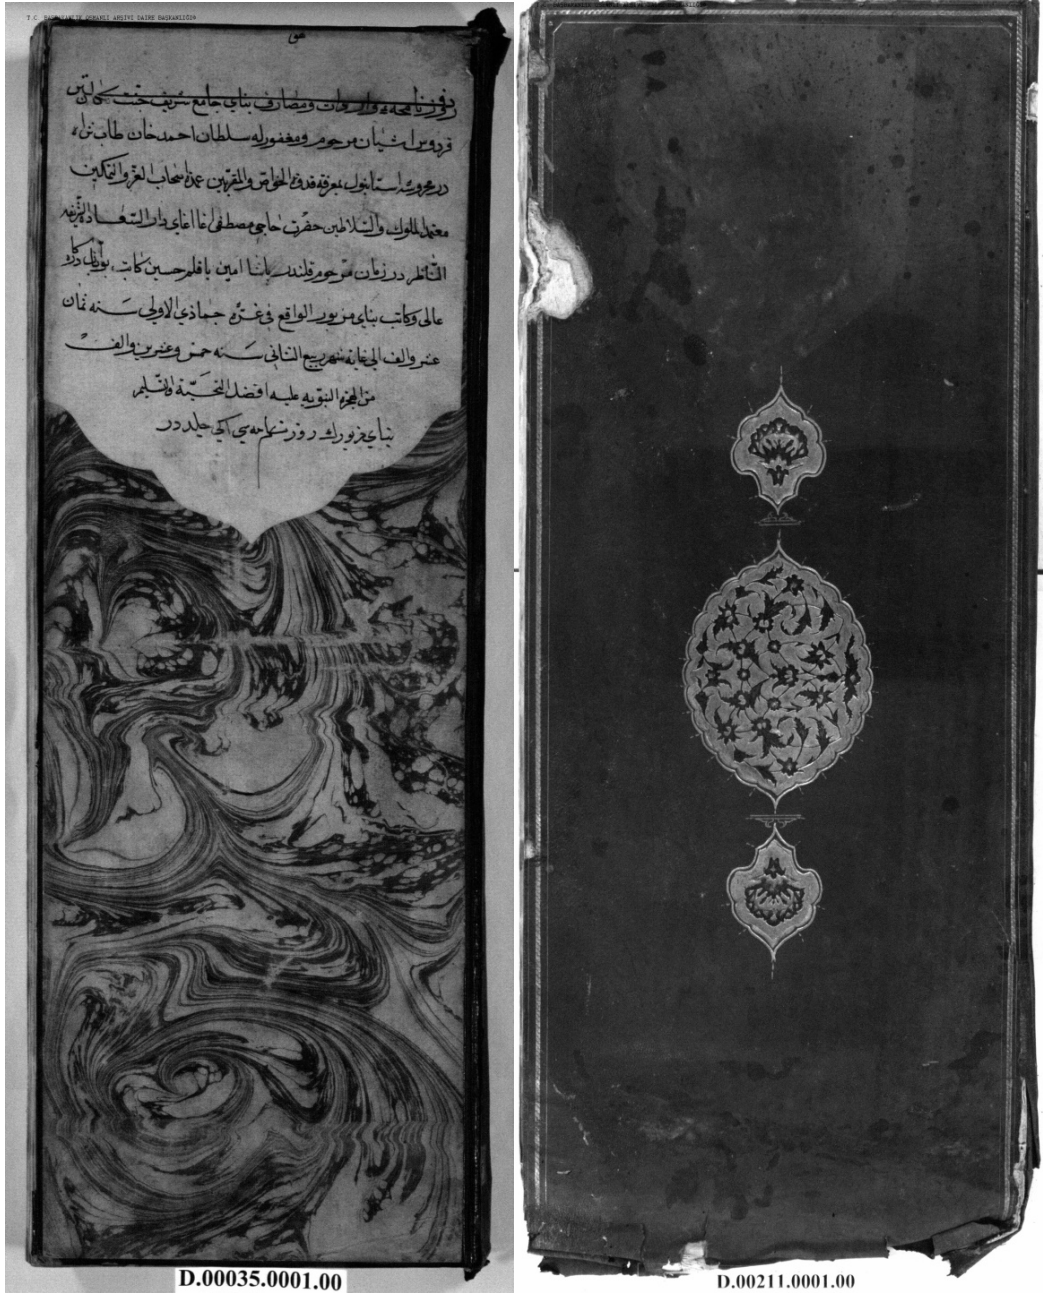 T.C. BAŞBAKANLIK OSMANLI ARŞİVİ DAİRE BAŞKANLIĞI
دفتر روزنامچهٔ واردات ومصارف بناي جامع شريف جنت مكان
فردوس اشيان مرحوم ومغفورله سلطان احمد خان طاب ثراه
در محروسهٔ استانبول بمعرفة قدوة الخواص والمقربين عمدة اصحاب العز والتمكين
معتمد الملوك والسلاطين حضرت حاجي مصطفى اغا اغاي دار السعادة الشريفه
الناظر در زمان مرحوم قلندر پاشا امين با قلم حسين كاتب
عالى وكاتب بناي مزبور الواقع في غرة جماذي الاولى سنه ثمان
عشر والف الى غاية شهر ربيع الثاني سنه خمس وعشرين والف
من الهجرة النبويه عليه افضل التحية والتسليم
بناي مزبورك روزنامچه سي ايكي جلددر
D.00035.0001.00
D.00211.0001.00